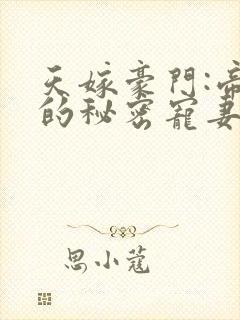 天嫁豪門:帝
的秘密寵妻
思小蔻